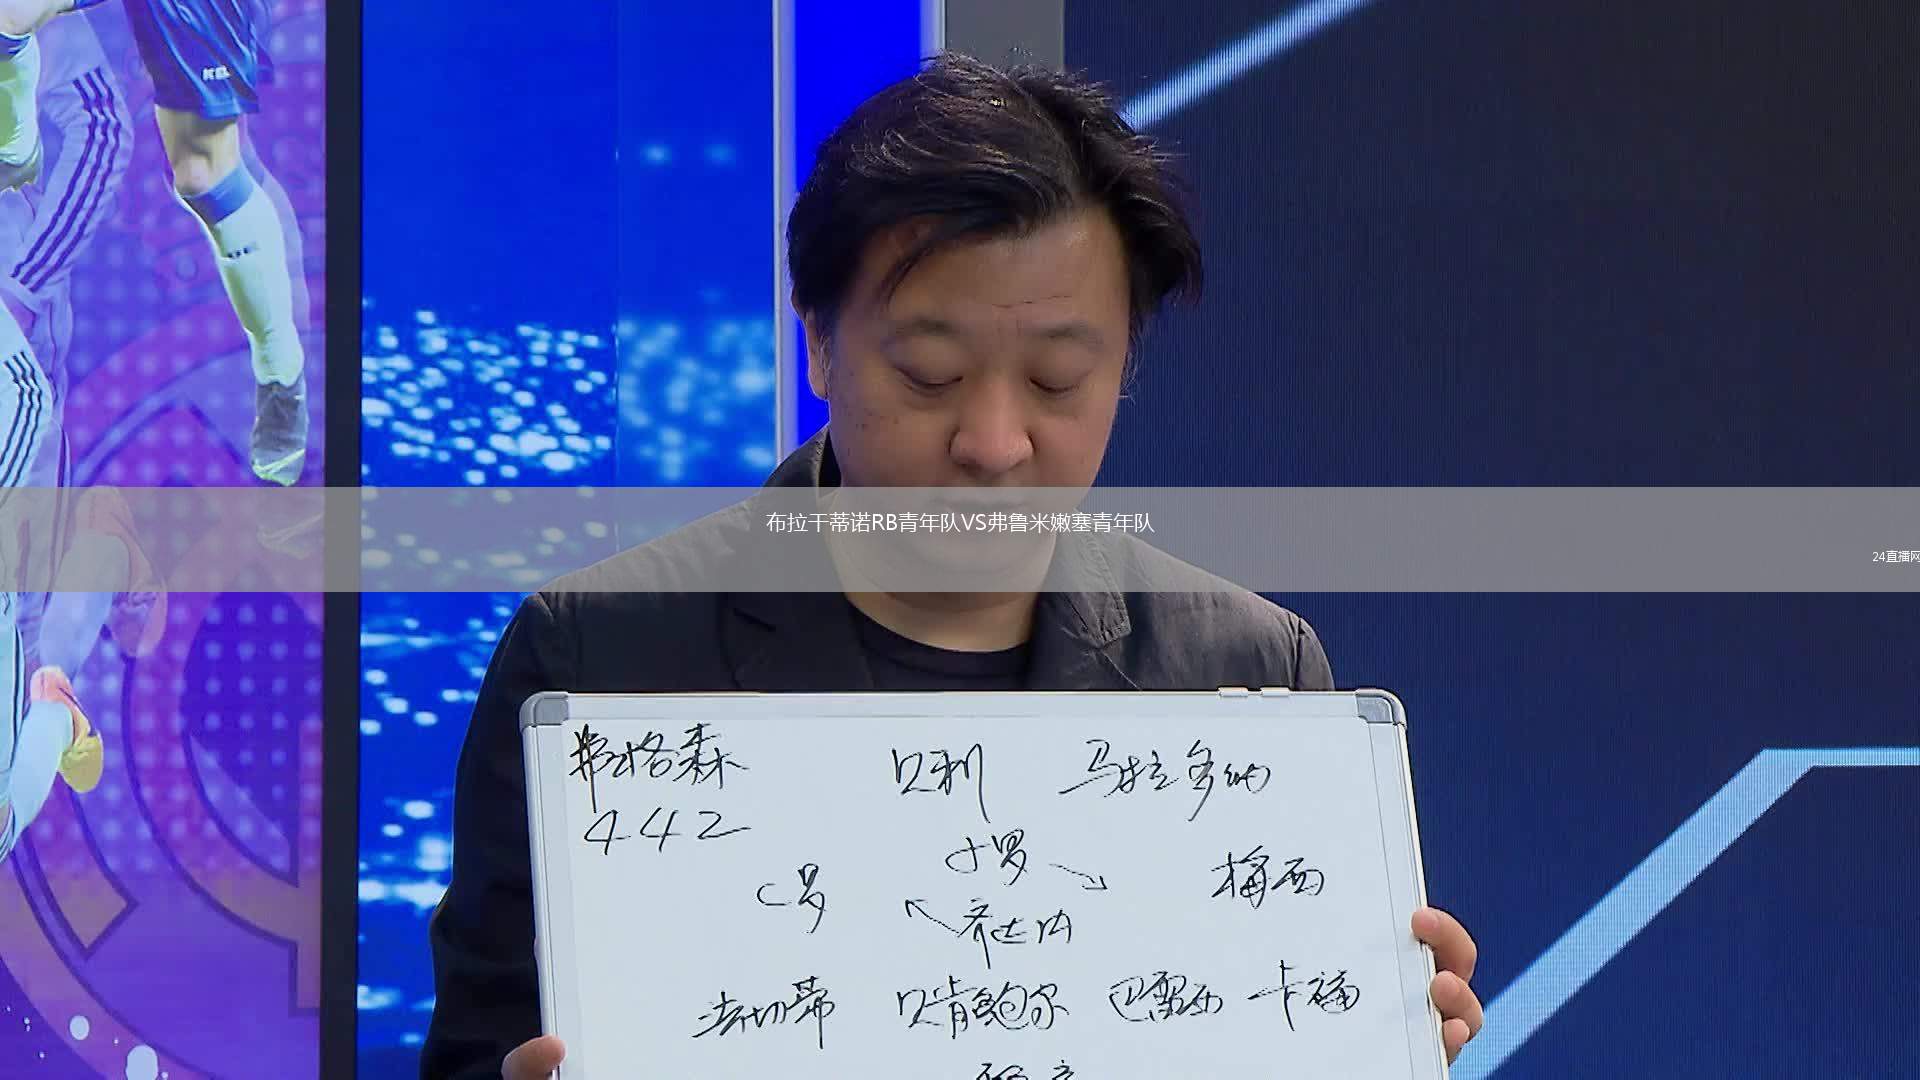 布拉干蒂诺RB青年队VS弗鲁米嫩塞青年队
24直播网
弗格森 贝利 马拉多纳
442
小罗
C罗 梅西
齐达内
法切蒂 贝肯鲍尔 巴雷西 卡福